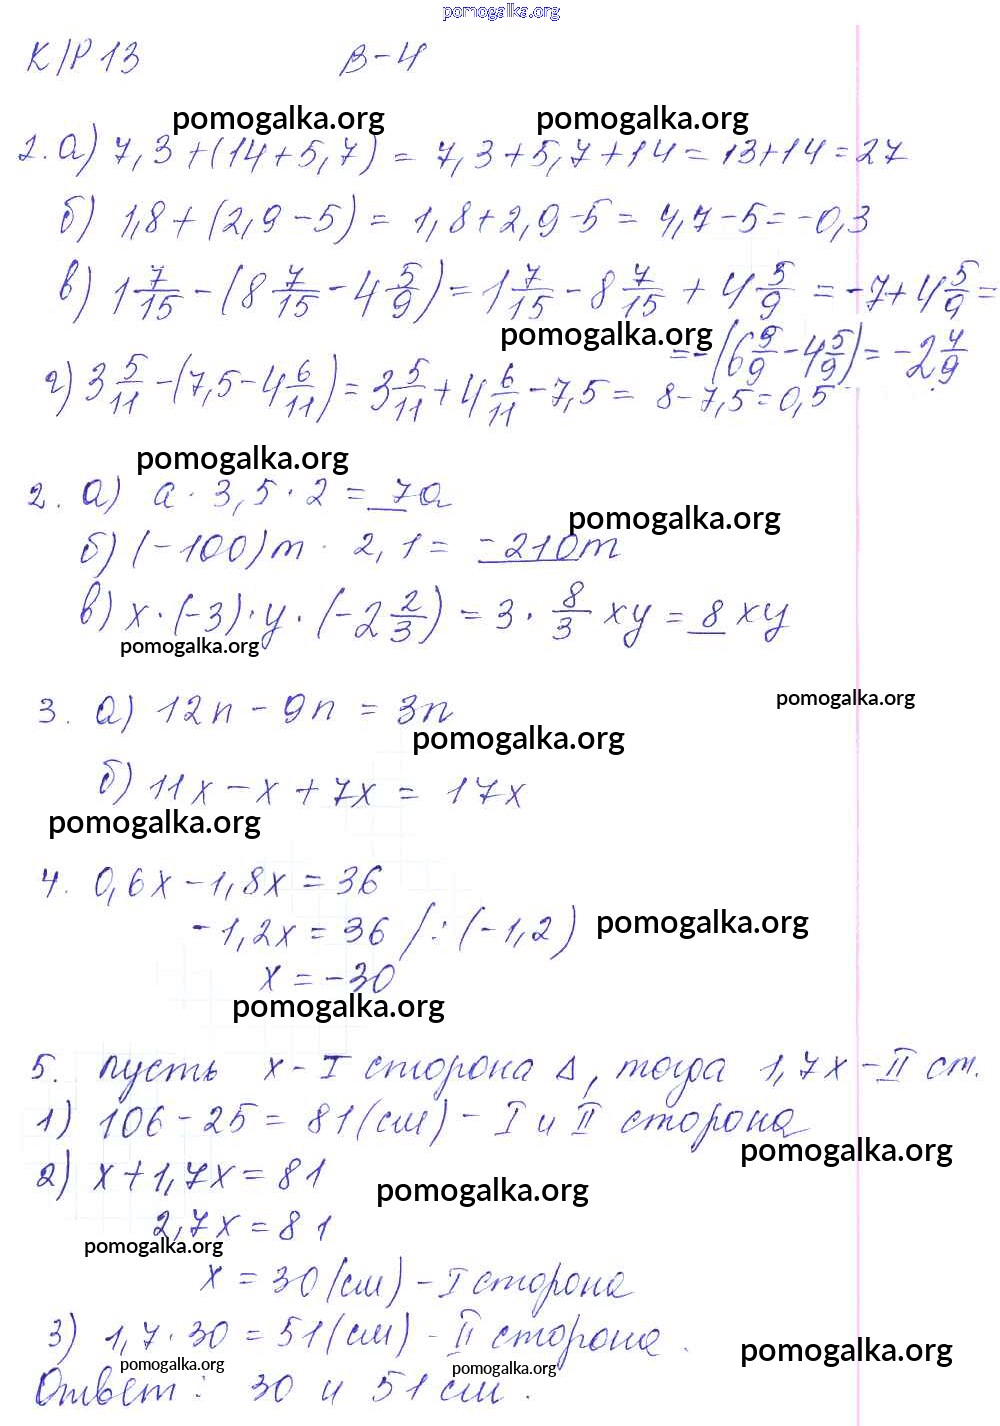 pomogalka.org
К/Р 13 В-4
pomogalka.org pomogalka.org
1. а) 7,3+(14+5,7) = 7,3+5,7+14=13+14=27
б) 1,8+(2,9-5) = 1,8+2,9-5= 4,7-5=-0,3
в) 1 7/15 - (8 7/15 - 4 5/9) = 1 7/15 - 8 7/15 + 4 5/9 = -7+4 5/9 =
pomogalka.org
= -(6 9/9 - 4 5/9) = -2 4/9
г) 3 5/11 - (7,5 - 4 6/11) = 3 5/11 + 4 6/11 - 7,5 = 8-7,5=0,5
pomogalka.org
2. а) a · 3,5 · 2 = 7a
pomogalka.org
б) (-100)m · 2,1 = -210m
в) x · (-3) · y · (-2 2/3) = 3 · 8/3 xy = 8 xy
pomogalka.org
pomogalka.org
3. а) 12n - 9n = 3n
pomogalka.org
б) 11x - x + 7x = 17x
pomogalka.org
4. 0,6x - 1,8x = 36
-1,2x = 36 /:(-1,2)
pomogalka.org
x = -30
pomogalka.org
5. пусть x - I сторона Δ, тогда 1,7x - II ст.
1) 106 - 25 = 81 (см) - I и II сторона
pomogalka.org
2) x+1,7x = 81
pomogalka.org
2,7x = 81
pomogalka.org
x = 30 (см) - I сторона
3) 1,7 · 30 = 51 (см) - II сторона.
pomogalka.org
pomogalka.org pomogalka.org
Ответ: 30 и 51 см.